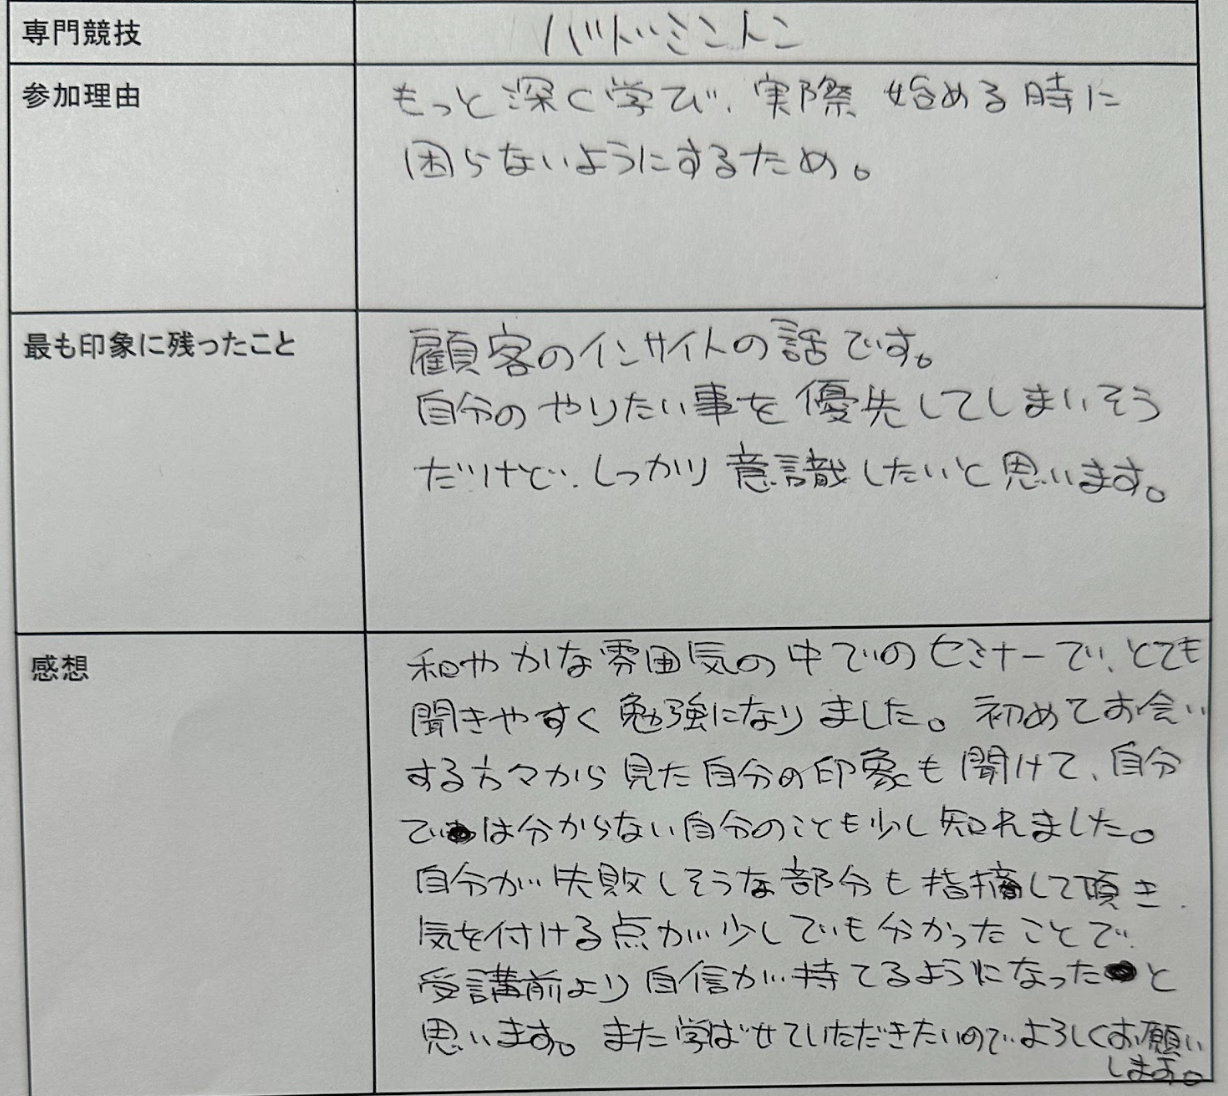 専門競技
バドミントン
参加理由
もっと深く学び、実際始める時に
困らないようにするため。
最も印象に残ったこと
顧客のインサイトの話です。
自分のやりたい事を優先してしまいそう
だけど、しっかり意識したいと思います。
感想
和やかな雰囲気の中でのセミナーで、とても
聞きやすく勉強になりました。初めてお会い
する方々から見た自分の印象も聞けて、自分
では分からない自分のことも少し知れました。
自分が失敗しそうな部分も指摘して頂き、
気を付ける点が少しでも分かったことで
受講前より自信が持てるようになったと
思います。また学ばせていただきたいのでよろしくお願い
します。